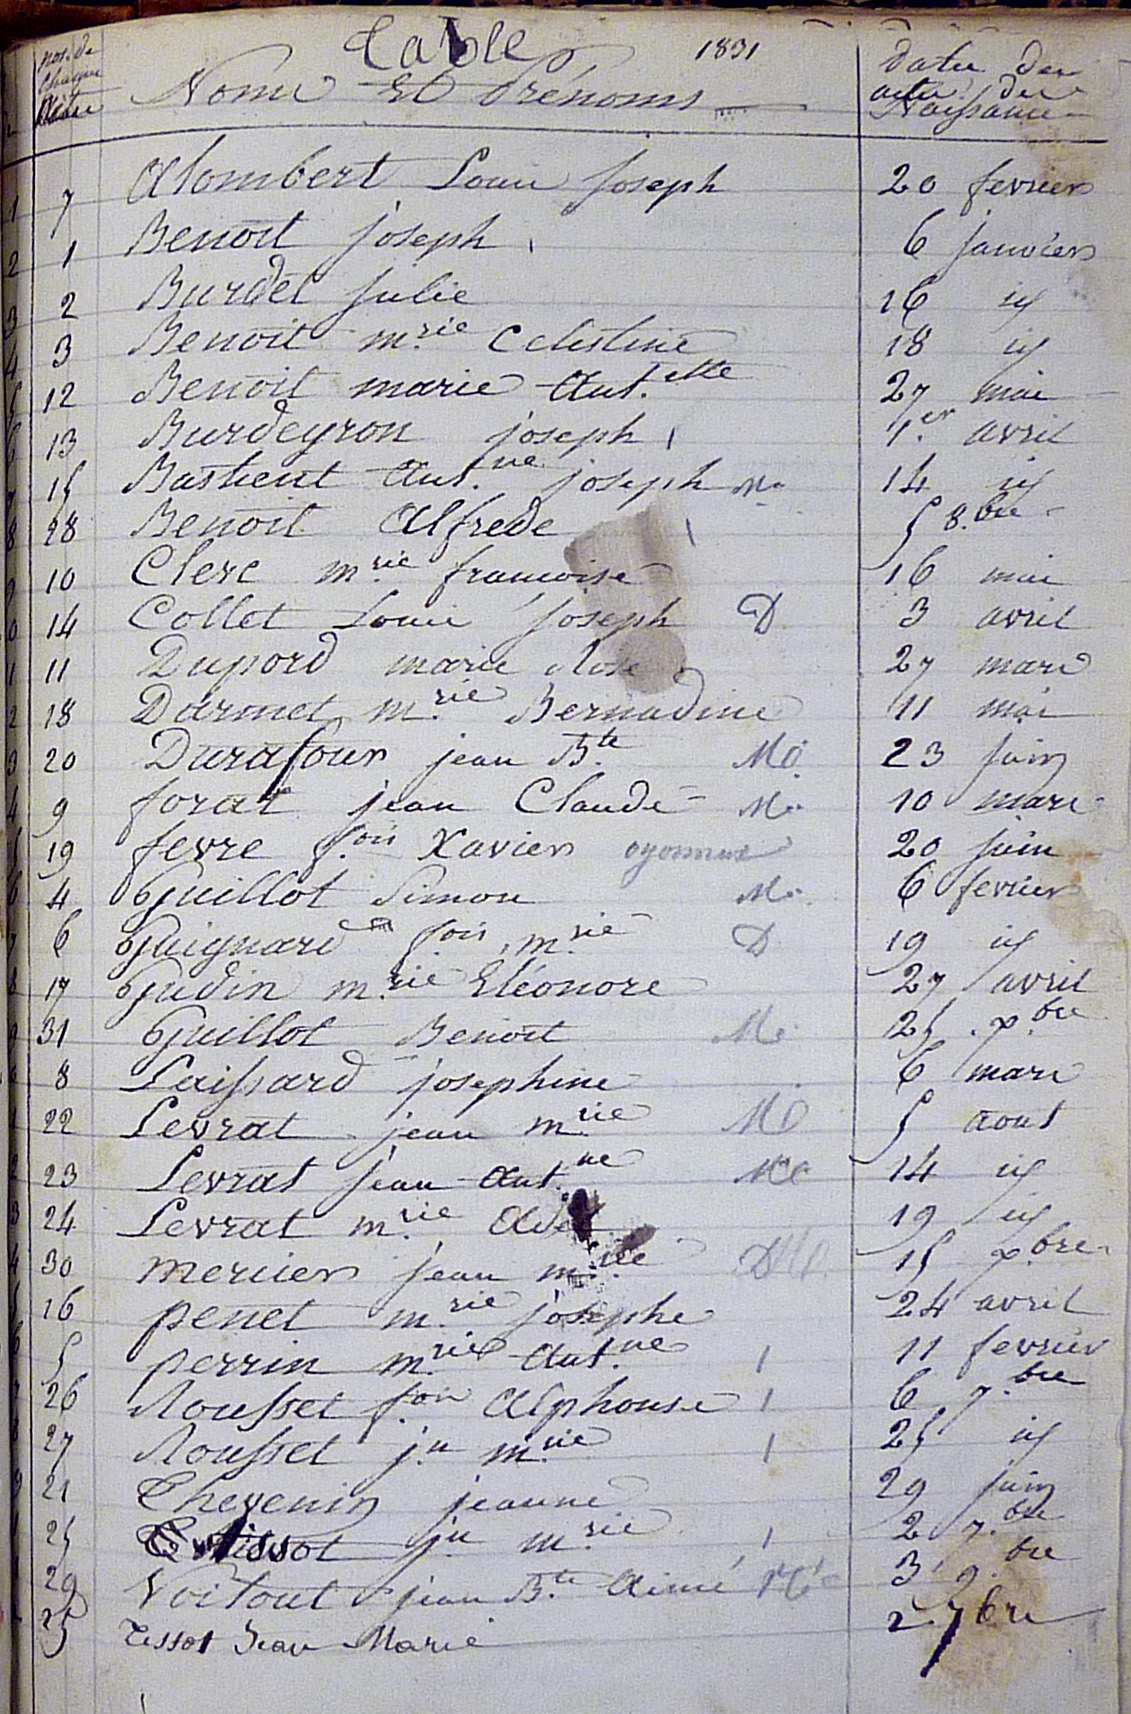 Table 1831
nos. de chaque acte Noms Et Prénoms date des actes de Naissance
1 7 Alombert Louis joseph 20 fevrier
2 1 Benoit joseph 6 janvier
3 2 Burdet julie 16 id
4 3 Benoit m.rie Celestine 18 id
5 12 Benoit marie Ant.ette 27 mai
6 13 Burdeyron joseph 1.er avril
7 15 Bastient Ant.ne joseph Mo 14 id
8 28 Benoit Alfrede 5 8.bre
9 10 Clerc m.rie francoise 16 mai
0 14 Collet Louis joseph D 3 avril
1 11 Dupord marie Rose 27 mars
2 18 Darmet m.rie Bernadine 11 mai
3 20 Durafour jean B.te Mo. 23 juin
4 9 forat jean Claude Mo 10 mars
5 19 fevre f.ois Xavier oyonnax 20 juin
6 4 Guillot Simon Mo. 6 fevrier
7 6 Guignard f.ois m.rie D 19 id
8 17 Gudin m.rie Eléonore 27 avril
9 31 Guillot Benoit Mo. 25 x.bre
8 Laissard josephine 6 mars
1 22 Levrat jean m.rie MO 5 aout
2 23 Levrat jean Ant.ne Mo 14 id
3 24 Levrat m.rie 19 id
4 30 mercier jean m.rie D 15 x.bre
5 16 penet m.rie josephe 24 avril
6 5 perrin m.rie Ant.ne 11 fevrier
7 26 Rousset f.ois Alphonse 6 7.bre
8 27 Rousset j.n m.rie 25 id
9 21 Thevenin jeanne 29 juin
25 Tissot j.n m.rie 2 7.bre
29 Voitout jean B.te Aimé 3 9.bre
25 Tissot Jean Marie 2 7bre